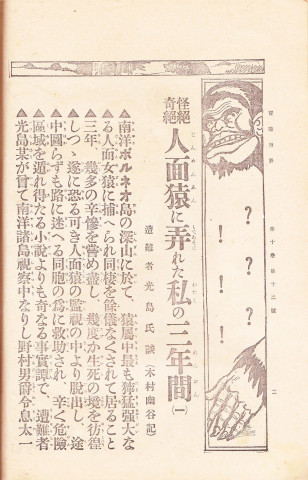 冒險世界 第十卷第十二號 二
？！？！？！
怪絕奇絕 人面猿に弄れた私の三年間（一）
遭難者 光島氏談（木村幽谷記）
▲南洋ボルネオ島の深山に於て、猿屬中最も獰猛強大な
る人面女猿に捕へられ同棲を餘儀なくされて居ること
三年、幾多の辛慘を嘗め盡し、幾度か生死の境を彷徨
しつゝ、遂に恐る可き人面猿の監視の中より脱出し、途
中圖らずも路に迷へる同胞の爲に救助され、辛く危險
區域を遁れ得たる小說よりも奇なる事實譚で、遭難者
光島某が曾て南洋諸島視察中なりし野村男爵令息太一